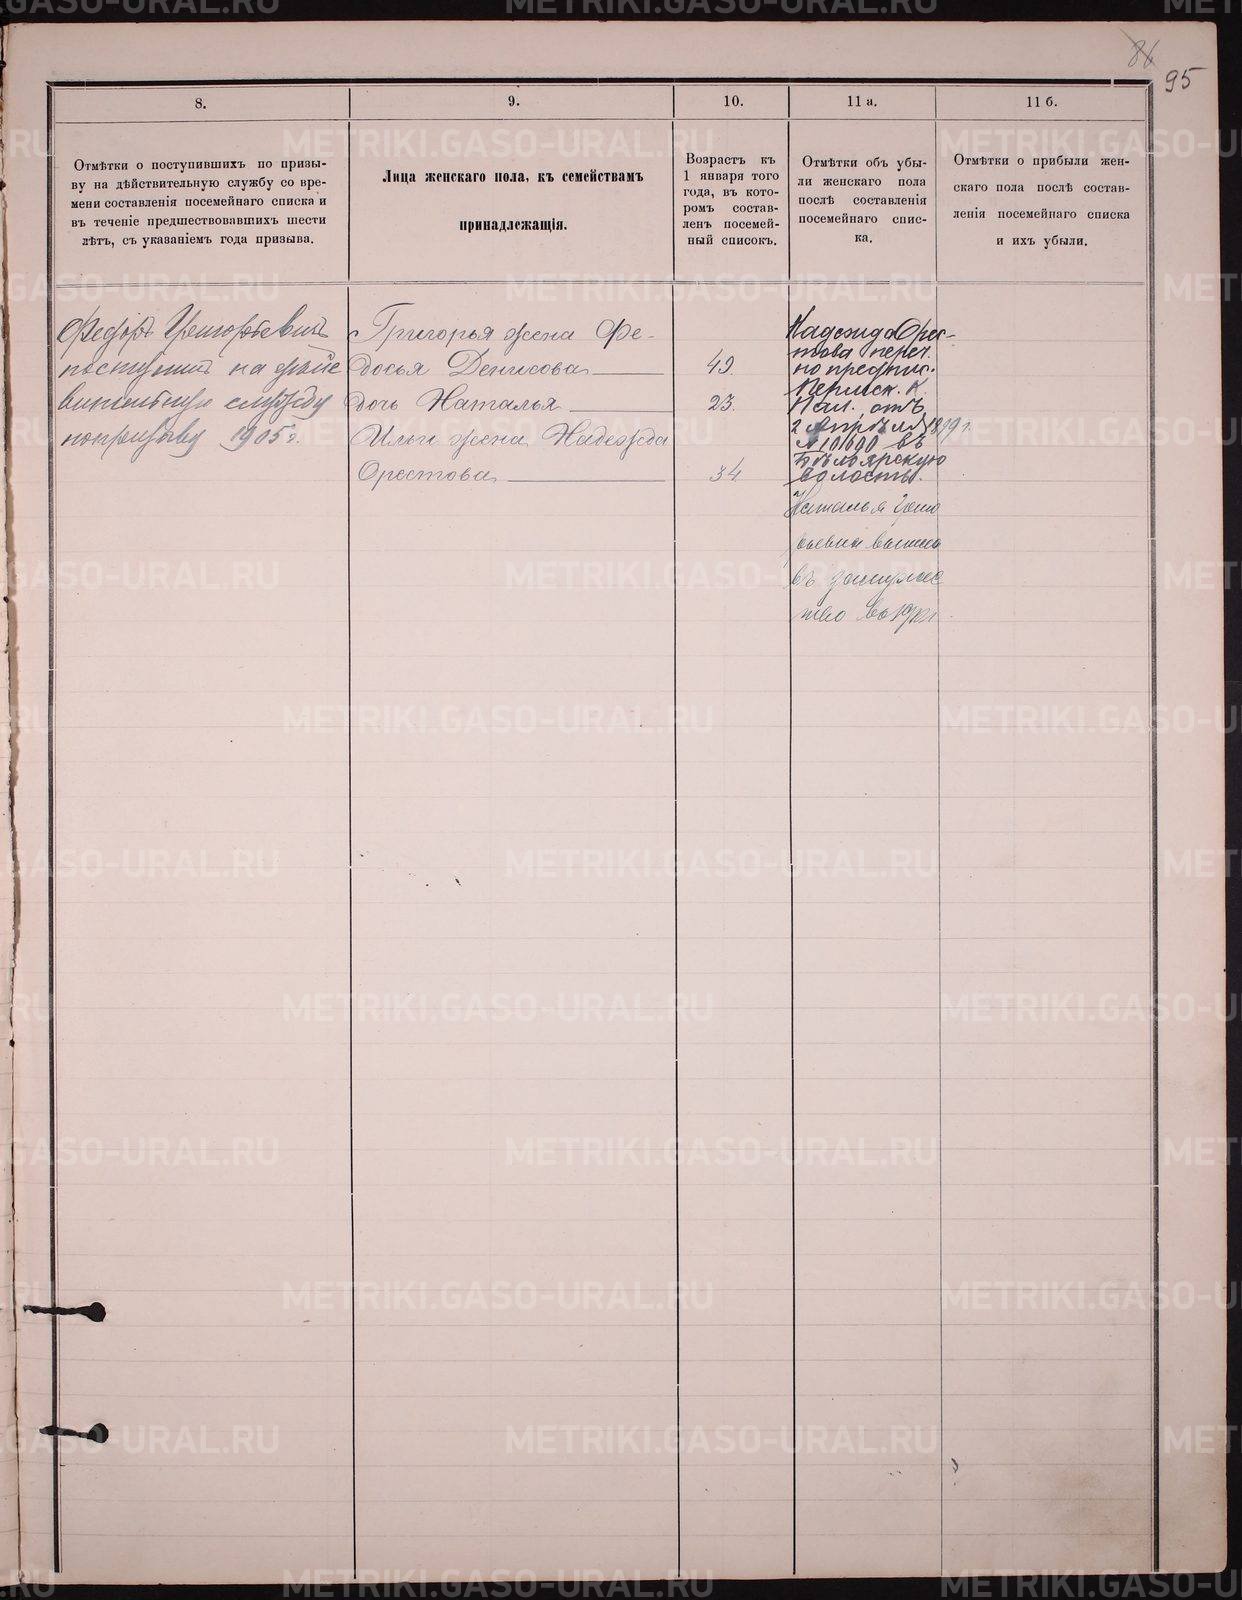 86
95
8.
9.
10.
11 а.
11 б.
Отмѣтки о поступившихъ по призы-
ву на дѣйствительную службу со вре-
мени составленія посемейнаго списка и
въ теченіе предшествовавшихъ шести
лѣтъ, съ указаніемъ года призыва.
Лица женскаго пола, къ семействамъ
принадлежащія.
Возрастъ къ
1 января того
года, въ кото-
ромъ состав-
ленъ посемей-
ный списокъ.
Отмѣтки объ убы-
ли женскаго пола
послѣ составленія
посемейнаго спис-
ка.
Отмѣтки о прибыли жен-
скаго пола послѣ состав-
ленія посемейнаго списка
и ихъ убыли.
Федоръ Григорьевичъ
поступилъ на дѣйс
вительную службу
попризыву 1905 г.
Григорья жена Фе-
досья Денисова
дочь Наталья
Ильи жена Надежда
Орестова
49
23
34
Надежда Орес-
това переч.
по предпис.
Пермск. К.
Пал. отъ
2 Апрѣля
въ
Бѣлоярскую
волость.
Наталья Григо
рьевна вышла
въ замужес
тво во
METRIKI.GASO-URAL.RU